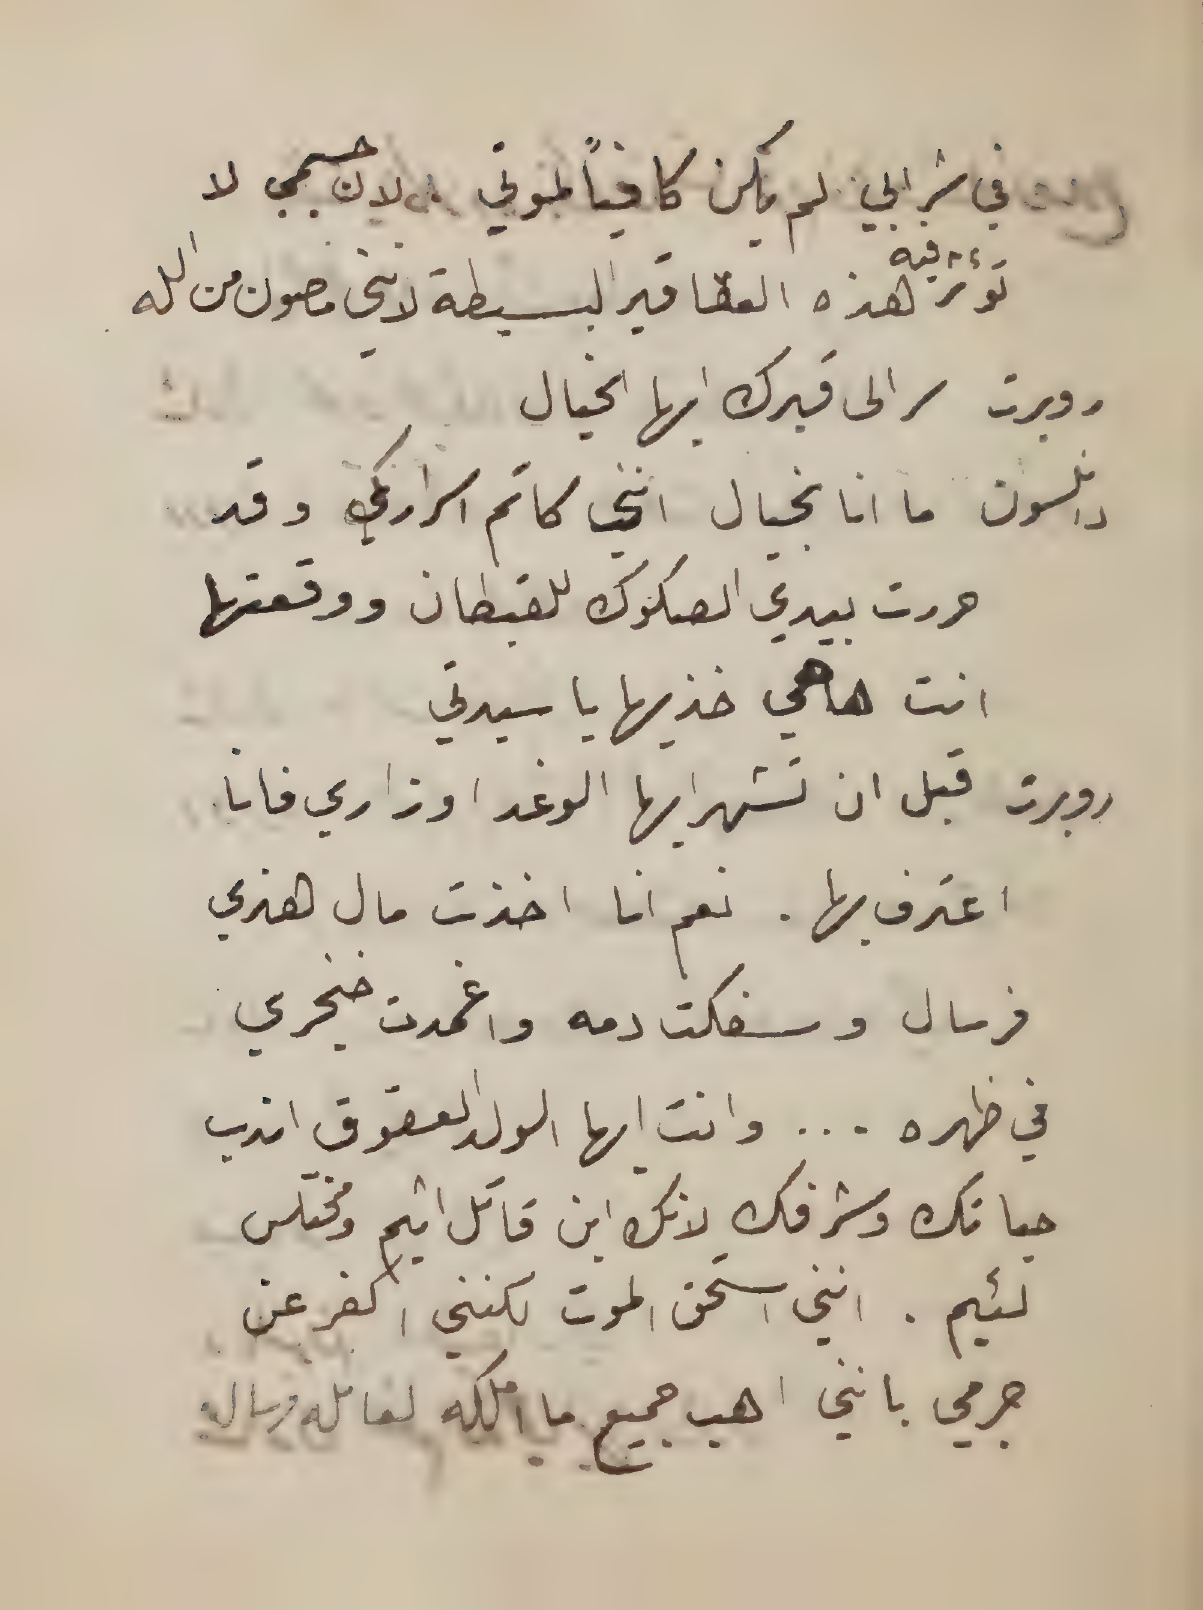 في شرابي لم يكن كافياً لموتي لان جسمي لا
تؤثر فيه هذه العقاقير البسيطة لانني مصون من الله
روبرت سر الى قبرك ايها الخيال
دانلسون ما انا بخيال انني كاتم اسراركم وقد
حررت بيدي الصكوك للقبطان ووقعتها
انت هاهي خذيها يا سيدتي
روبرت قبل ان تشهر ايها الوغد اوزاري فانا
اعترف بها . نعم انا اخذت مال هنري
فرسال وسفكت دمه واغمدت خنجري
في ظهره ... وانت ايها الولد العقوق اندب
حياتك وشرفك لانك ابن قاتل اثيم ومختلس
لئيم . انني استحق الموت لكنني اكفر عن
جرمي بانني اهب جميع ما املكه لعائله فرسال